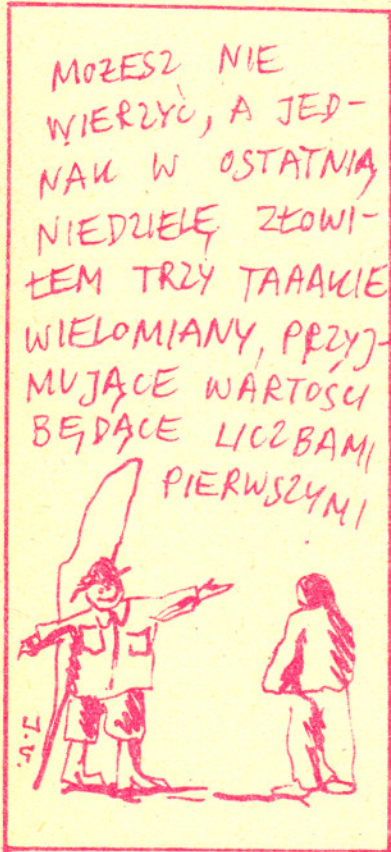 MOŻESZ NIE
WIERZYĆ, A JED-
NAK W OSTATNIĄ
NIEDZIELĘ ZŁOWI-
ŁEM TRZY TAAAKIE
WIELOMIANY, PRZYJ-
MUJĄCE WARTOŚCI
BĘDĄCE LICZBAMI
PIERWSZYMI